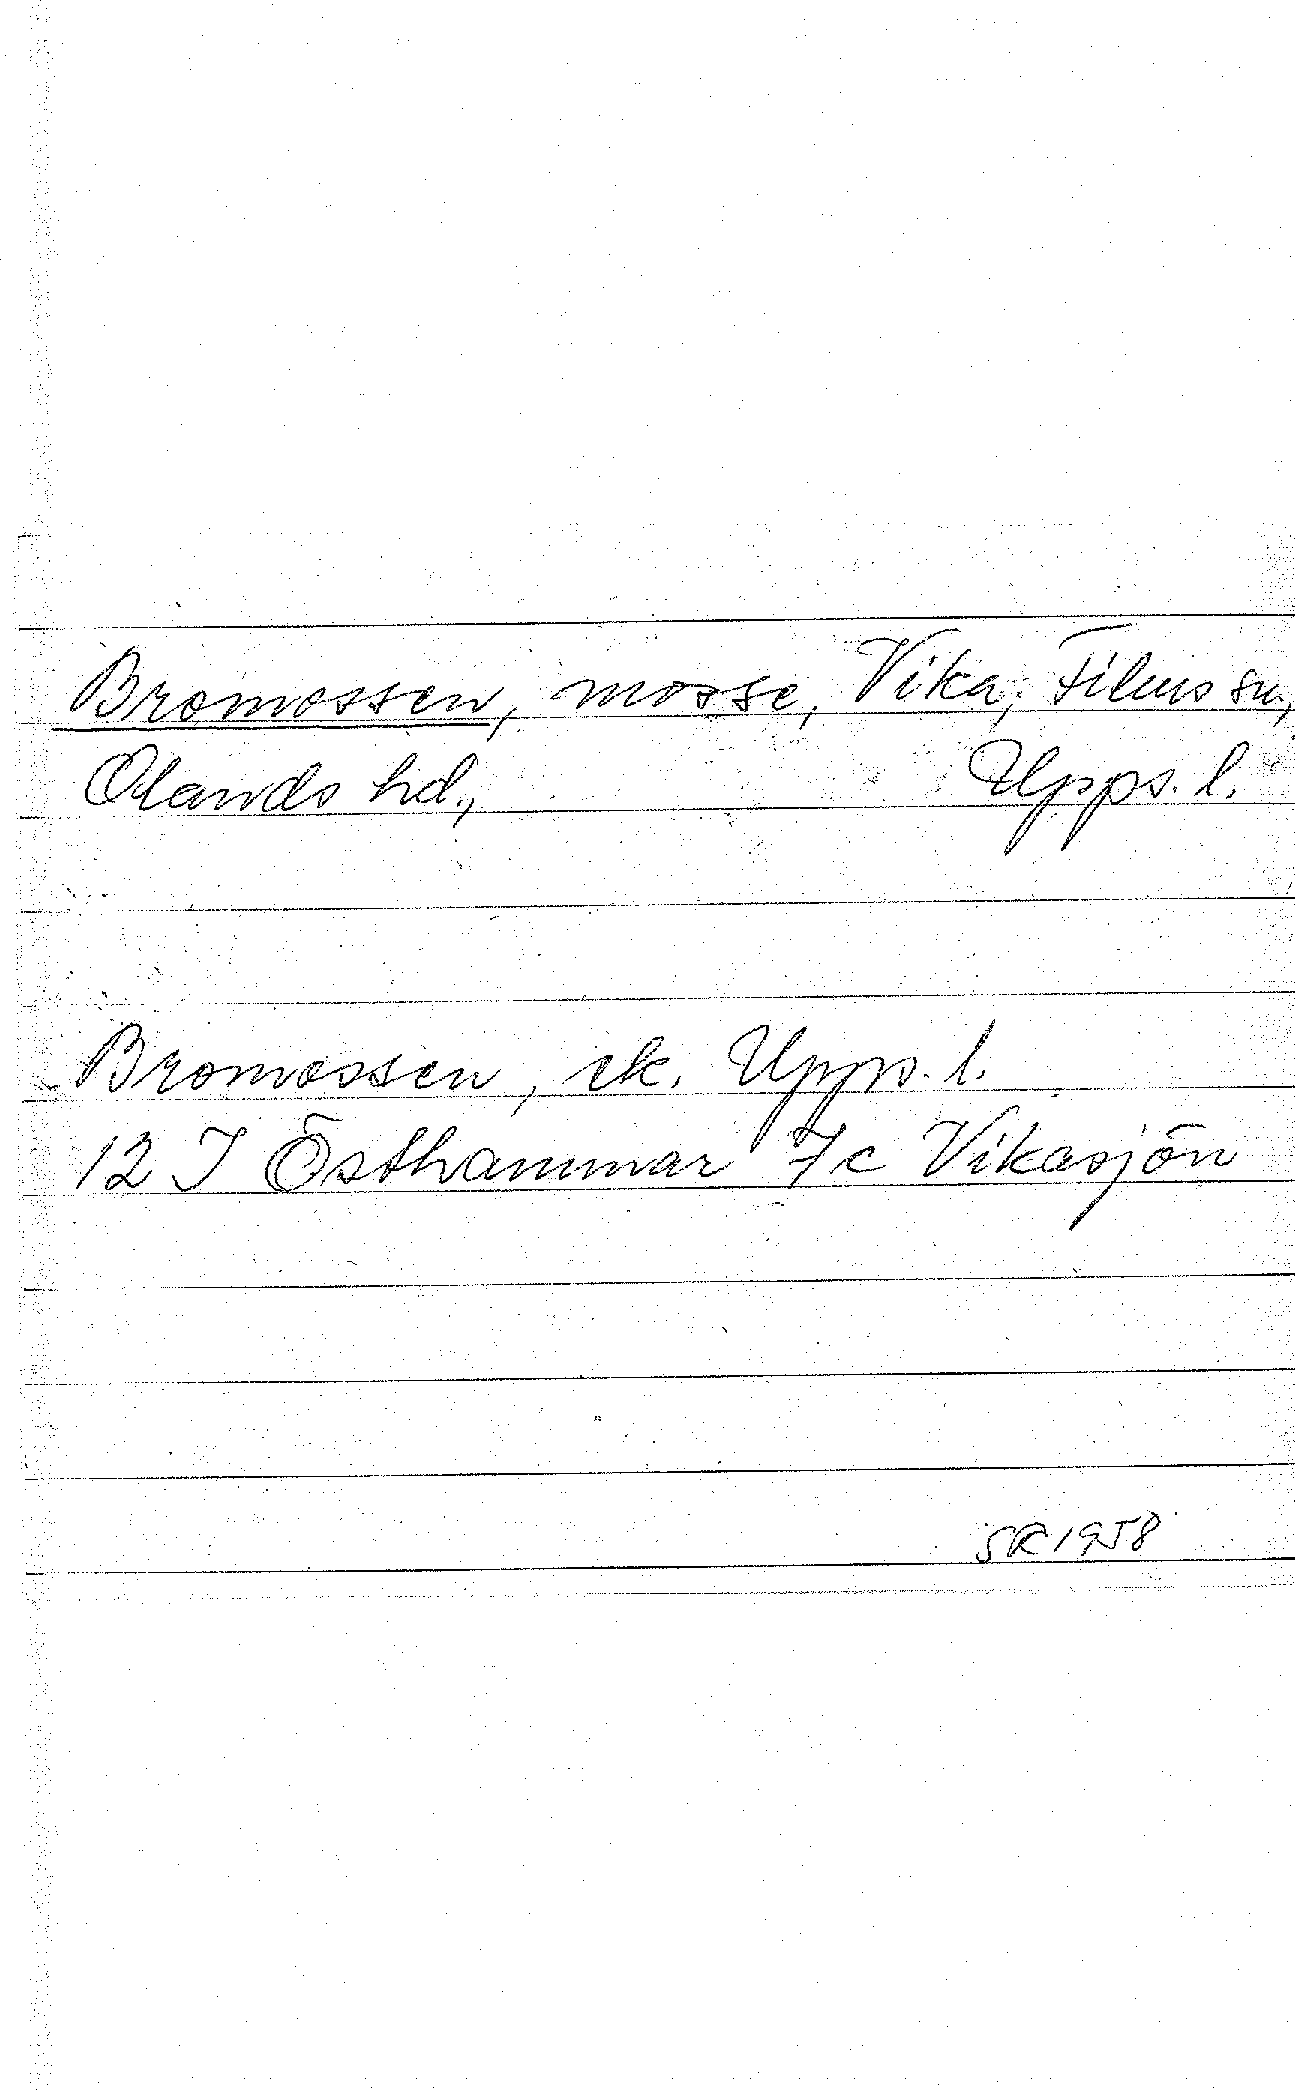 Bromossen, mosse, Vika, Films sn,
Olands hd., Upps. l.
Bromossen, ek. Upps. l.
12 I Östhammar 7c Vikasjön
SR 1958